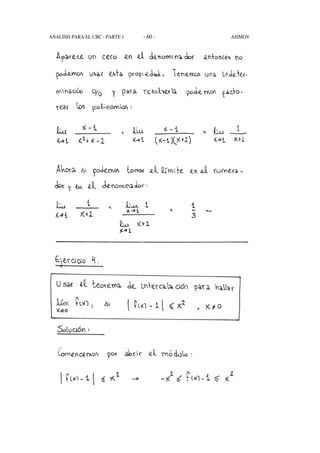 ANALISIS PARA EL CBC - PARTE 1 - 60 - ASIMOV
Aparece un cero en el denominador entonces no
podemos usar esta propiedad. Tenemos una indeter-
minación 0/0 y para resolverla podemos facto-
rear los polinomios:
lim x→1 x-1 / x²+x-2 = lim x→1 x-1 / (x-1)(x+2) = lim x→1 1 / x+2
Ahora si podemos tomar el límite en el numera-
dor y en el denominador:
lim x→1 1 / x+2 = lim x→1 1 / lim x→1 x+2 = 1/3
Ejercicio 4.
Usar el teorema de intercalación para hallar
lim x→0 f(x), si | f(x) - 1 | ≤ x² , x ≠ 0
Solución:
Comencemos por abrir el módulo:
| f(x) - 1 | ≤ x² → -x² ≤ f(x) - 1 ≤ x²